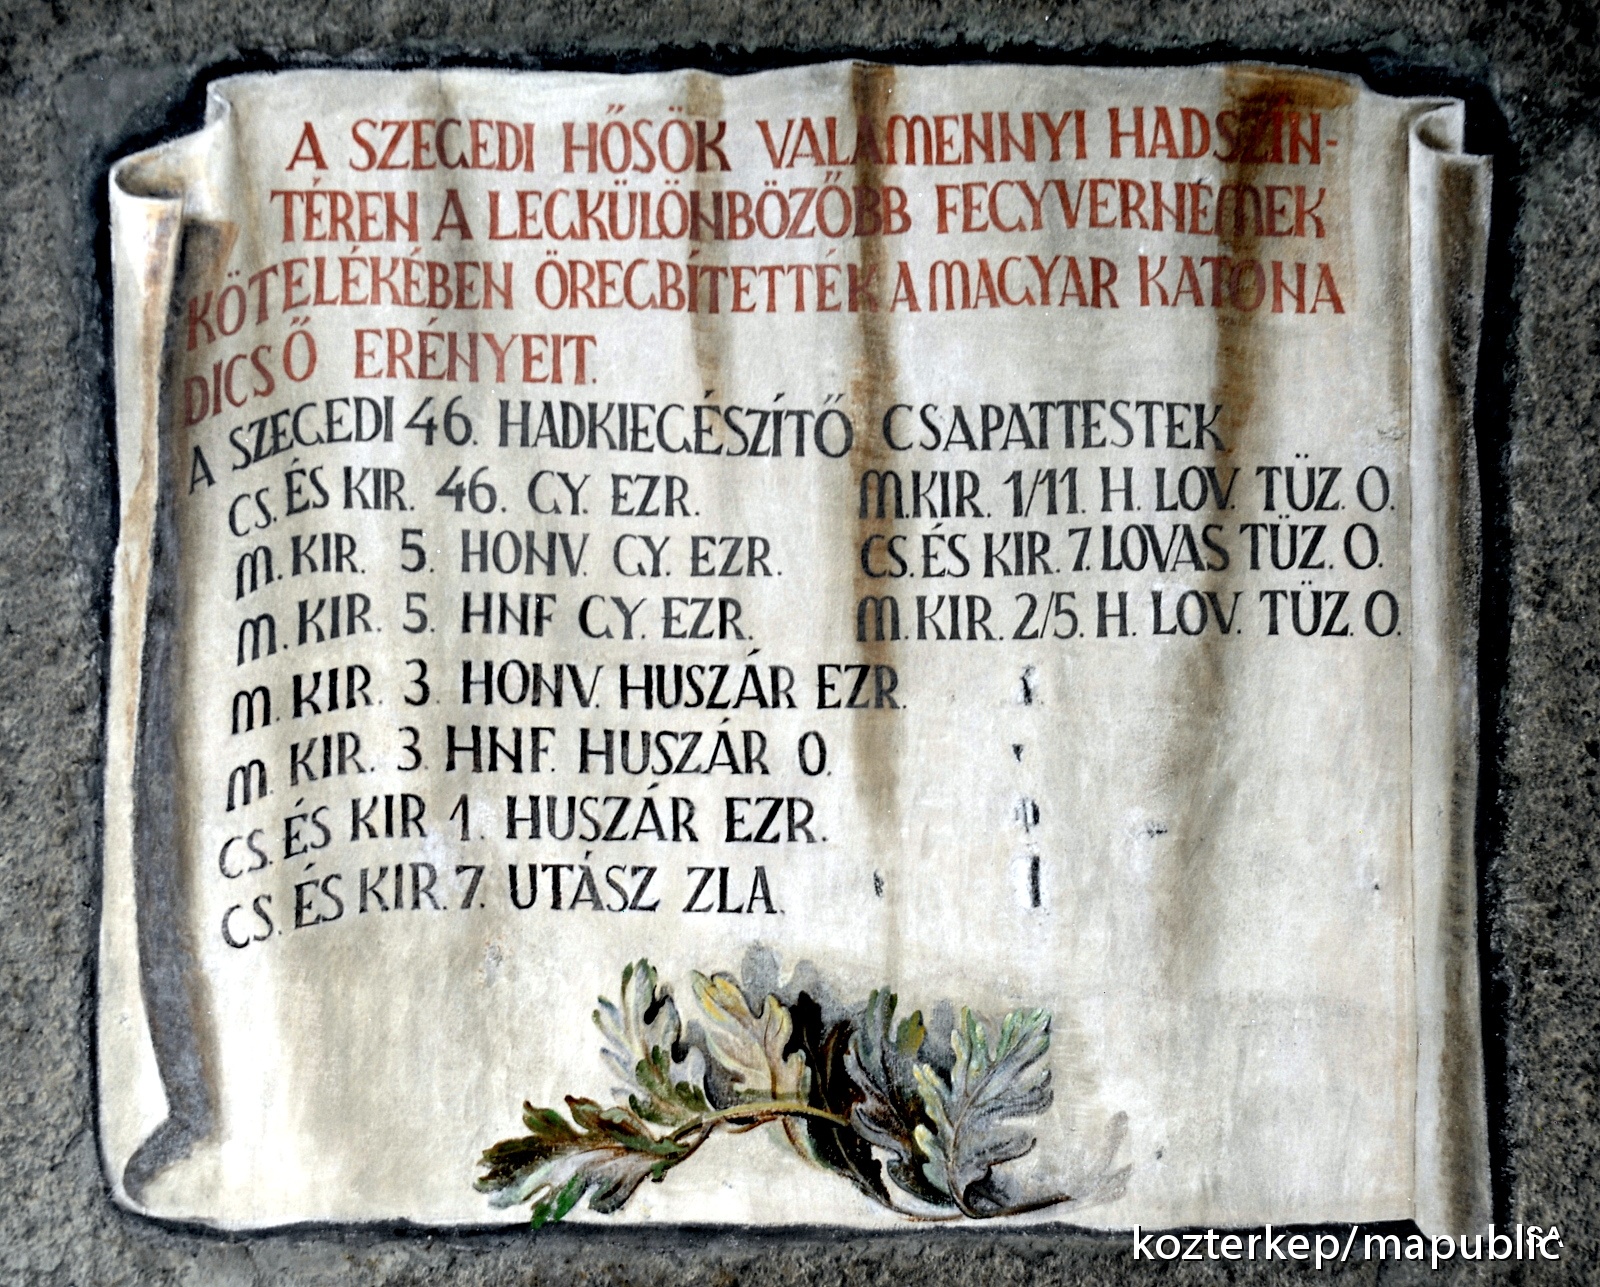 A SZEGEDI HŐSÖK VALAMENNYI HADSZIN-
TÉREN A LEGKÜLÖNBÖZŐBB FEGYVERNEMEK
KÖTELÉKÉBEN ÖREGBÍTETTÉK A MAGYAR KATONA
DICSŐ ERÉNYEIT.
A SZEGEDI 46. HADKIEGÉSZÍTŐ CSAPATTESTEK
CS. ÉS KIR. 46. GY. EZR.
M. KIR. 5. HONV. GY. EZR.
M. KIR. 5. HNF GY. EZR.
M. KIR. 3. HONV. HUSZÁR EZR.
M. KIR. 3. HNF. HUSZÁR O.
CS. ÉS KIR 1. HUSZÁR EZR.
CS. ÉS KIR. 7. UTÁSZ ZLA.
M.KIR. 1/11. H. LOV. TÜZ. O.
CS. ÉS KIR. 7. LOVAS TÜZ. O.
M. KIR. 2/5. H. LOV. TÜZ. O.
kozterkep/mapublic
SA